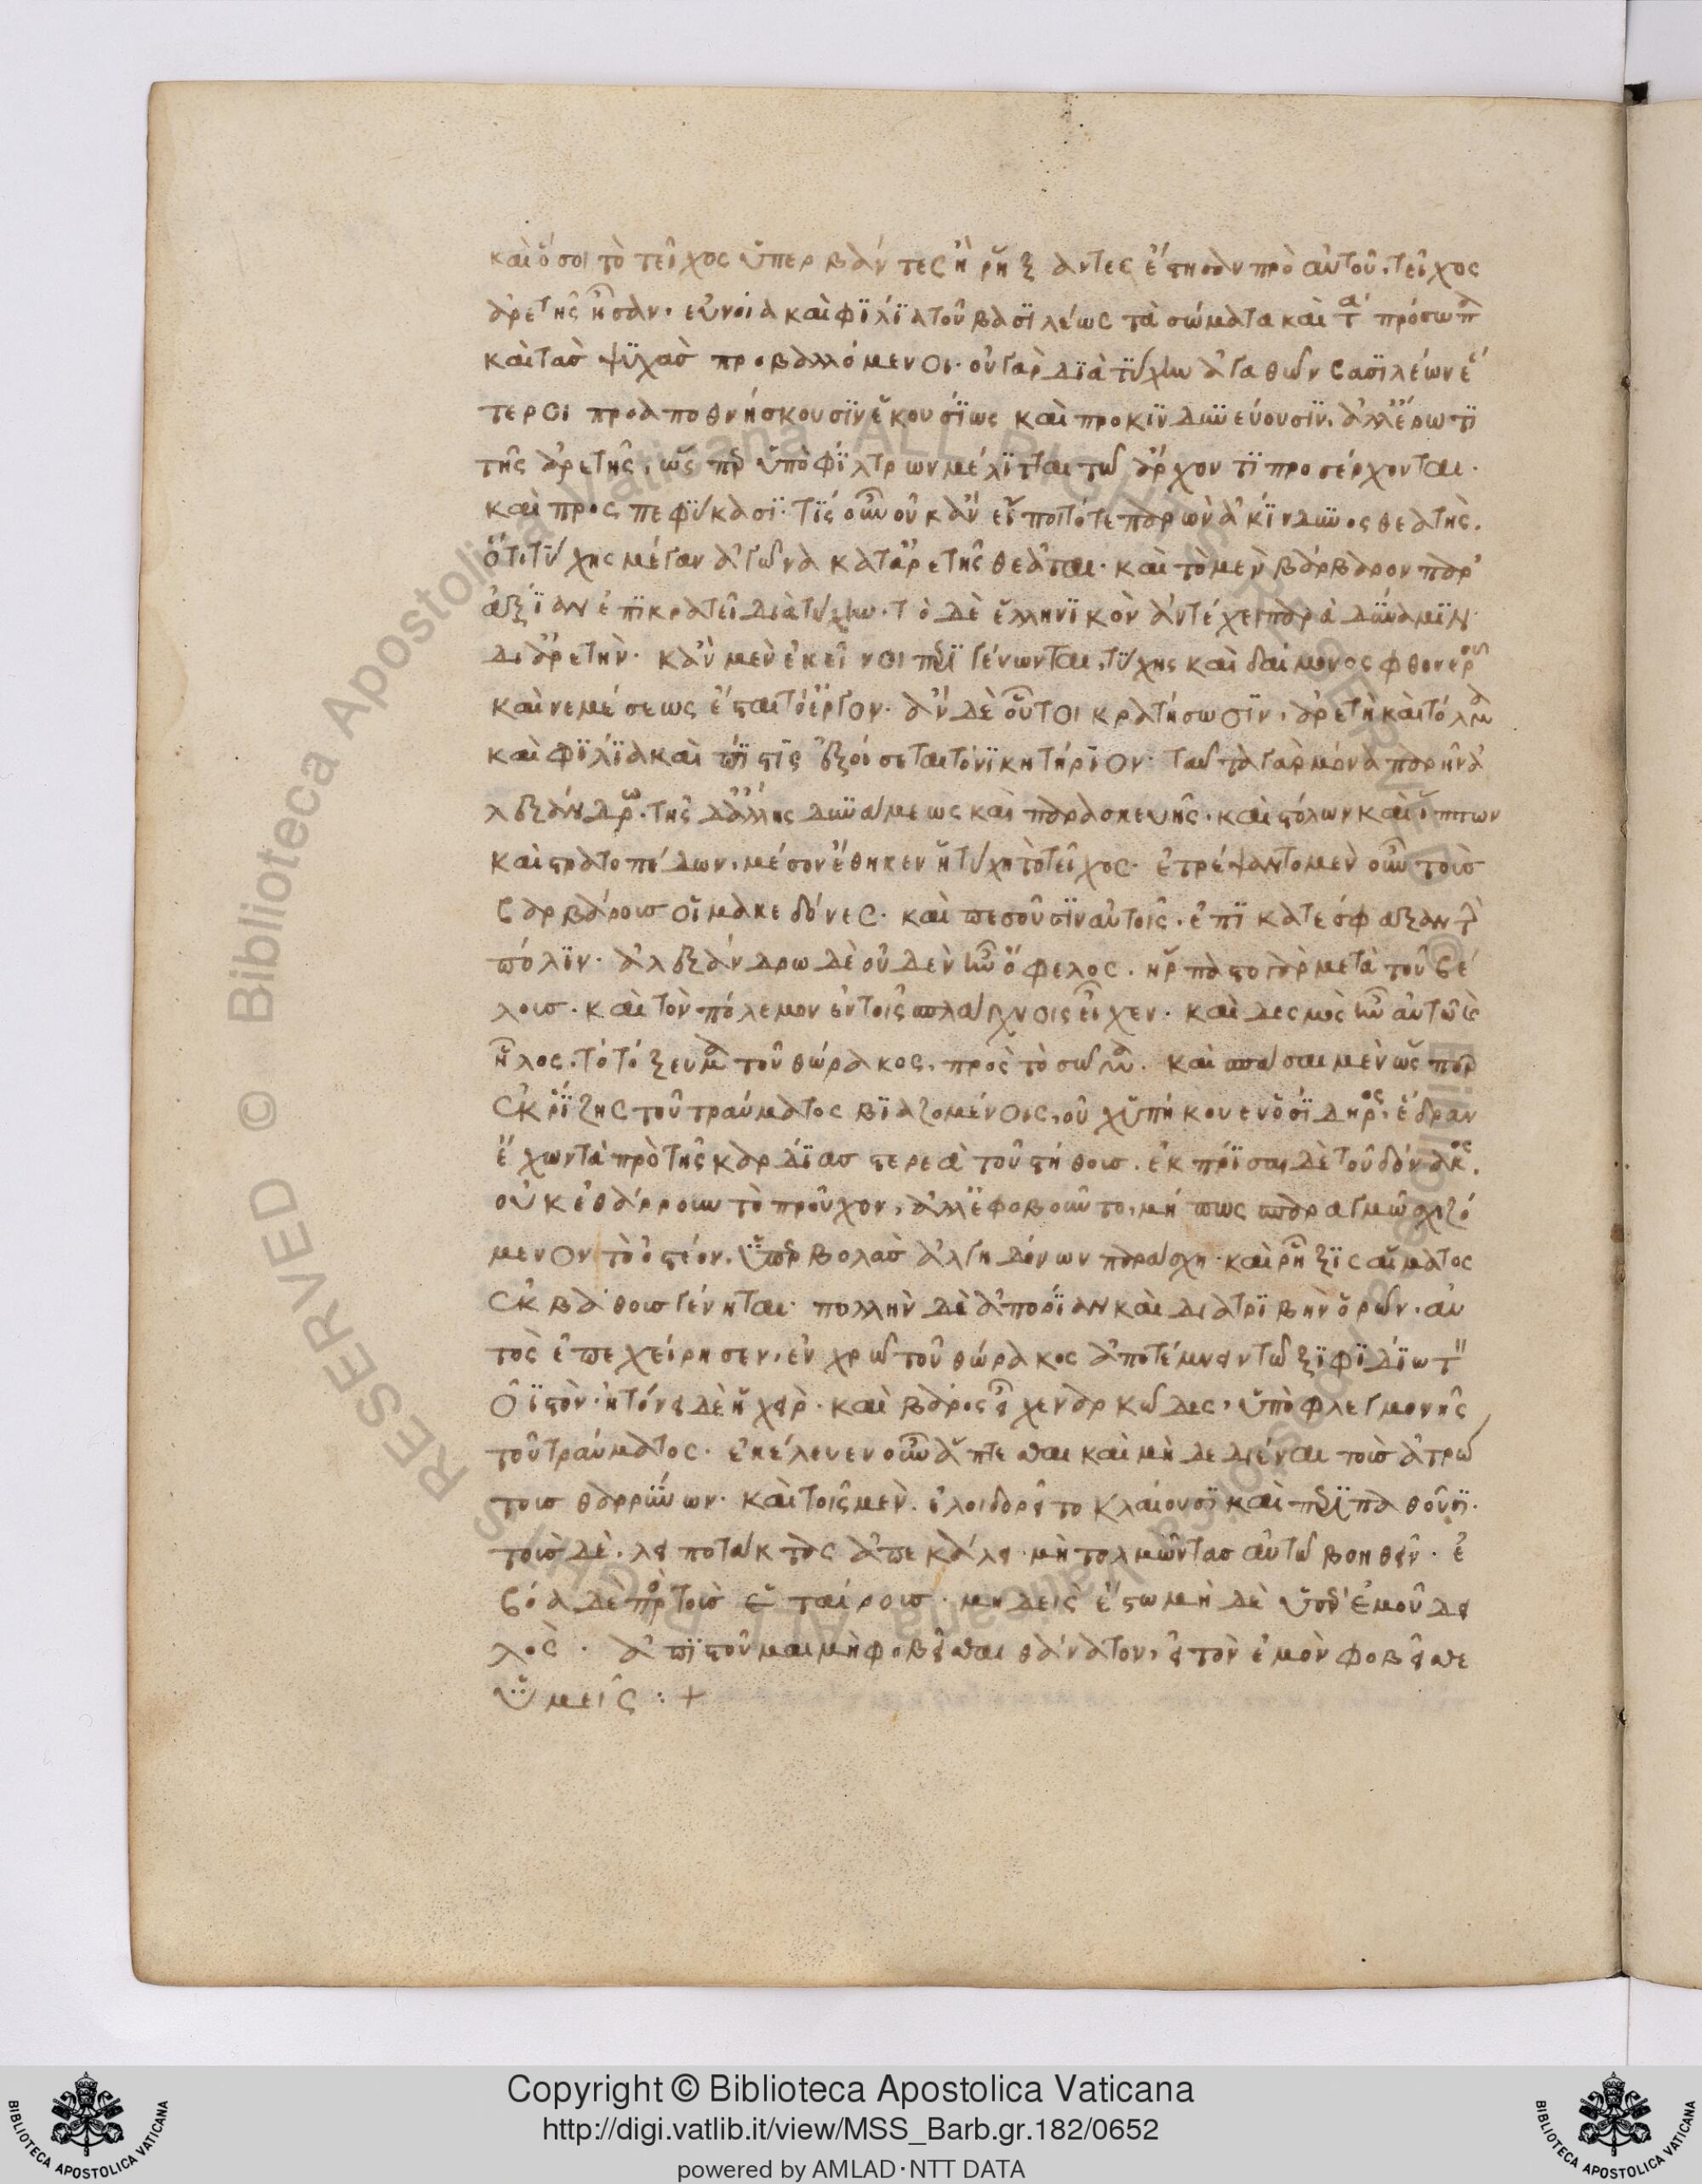 καὶ ὅσοι τὸ τεῖχος ὑπερβάντες ἢ ῥήξαντες ἔστησαν πρὸ αὐτοῦ. τεῖχος
ἀρετῆς ἦσαν. εὐνοία καὶ φϊλϊα τοῦ βασϊλέως τὰ σώματα καὶ τὰ πρόσωπα
καὶ τὰσ ψϋχὰσ προβαλλόμενοι. οὐ γὰρ δϊὰ τϋχην ἀγαθῶν βασϊλέων ἕ
τεροι προαποθνήσκουσϊν ἑκουσϊως καὶ προκϊνδϋνεύουσϊν. ἀλλ' ἔρωτϊ
τῆς ἀρετῆς, ὥσπερ ὑπὸ φϊλτρων μέλϊτται τῶ ἄρχοντϊ προσέρχονται.
καὶ προσπεφϋκασϊ. τϊς οὖν οὐκ ἂν εἴποι τότε παρὼν ἀκϊνδϋνος θεατὴς.
ὅτι τϋχης μέγαν ἀγῶνα κατ' ἀρετῆς θεᾶται. καὶ τὸ μὲν βάρβαρον παρ'
ἀξϊαν ἐπϊκρατεῖ διὰ τύχην. τὸ δὲ ἑλληνϊκὸν ἀντέχει παρὰ δϋναμϊν
δι' ἀρετὴν. κἂν μὲν ἐκεῖνοι περϊγένωνται, τϋχης καὶ δαίμονος φθονεροῦ
καὶ νεμέσεως ἔσται τὸ ἔργον. ἂν δὲ οὗτοι κρατήσωσϊν, ἀρετὴ καὶ τόλμα
καὶ φϊλϊα καὶ πϊστϊς ἐξοίσεται τὸ νϊκητήρϊον. ταῦτα γὰρ μόνα παρῆν ἀ
λεξάνδρω. τῆς δ' ἄλλης δϋνάμεως καὶ παρασκευῆς. καὶ στόλων καὶ ἵππων
καὶ στρατοπέδων, μέσον ἔθηκεν ἡ τύχη τὸ τεῖχος. ἐτρέψαντο μὲν οὖν τοὺσ
βαρβάρουσ οἱ μακεδόνες. καὶ πεσοῦσϊν αὐτοῖς. ἐπϊκατέσφαξαν τὴν
πόλϊν. ἀλεξάνδρω δὲ οὐδὲν ἦν ὄφελος. ἥρπαστο γὰρ μετὰ τοῦ βέ
λουσ. καὶ τὸν πόλεμον ἐν τοῖς σπλάγχνοις εἶχεν. καὶ δεσμὸς ἦν αὐτῶ καὶ
ἧλος. τὸ τόξευμα τοῦ θώρακος, πρὸς τὸ σῶμα. καὶ σπάσαι μὲν ὥσπερ
ἐκ ῥϊζης τοῦ τραύματος βϊαζομένοις, οὐχ ὑπήκουεν ὁ σϊδηρος, ἕδραν
ἔχων τὰ πρὸ τῆς καρδϊασ στερεὰ τοῦ στήθουσ. ἐκπρϊσαι δὲ τοῦ δόνακος.
οὐκ ἐθάρρουν τὸ προῦχον, ἀλλ' ἐφοβοῦντο, μή πως σπαραγμῶ σχιζό
μενον τὸ ὀστέον. ὑπερβολὰσ ἀλγηδόνων παράσχη. καὶ ῥῆξϊς αἵματος
ἐκ βάθουσ γένηται. πολλὴν δὲ ἀπορϊαν καὶ διατρϊβὴν ὁρῶν. αὐ
τὸς ἐπεχείρησεν, ἐν χρῶ τοῦ θώρακος ἀποτέμνειν τῶ ξϊφϊδϊω τὸν
ὀϊστὸν. ἠτόνει δὲ ἡ χεὶρ. καὶ βάρος εἶχε ναρκῶδες, ὑπὸ φλεγμονῆς
τοῦ τραύματος. ἐκέλευεν οὖν ἅπτεσθαι καὶ μὴ δεδιέναι τοὺσ ἀτρώ
τουσ θαρρϋνων. καὶ τοῖς μὲν. ἐλοιδορεῖτο κλαίουσϊ καὶ περϊπαθοῦσϊ.
τοὺσ δὲ. λειποτάκτας ἀπεκάλει. μὴ τολμῶντασ αὐτῶ βοηθεῖν. ἐ
βόα δὲ πρὸς τοὺσ ἑταίρουσ. μηδεὶς ἔστω μὴ δὲ ὑπὲρ ἐμοῦ δει
λὸς. ἀπϊστοῦμαι μὴ φοβεῖσθαι θάνατον, εἰ τὸν ἐμὸν φοβεῖσθε
ὑμεῖς : +
RESERVED © Biblioteca Apostolica Vaticana ALL RIGHTS RESERVED
Copyright © Biblioteca Apostolica Vaticana
http://digi.vatlib.it/view/MSS_Barb.gr.182/0652
powered by AMLAD·NTT DATA
BIBLIOTECA APOSTOLICA VATICANA
BIBLIOTECA APOSTOLICA VATICANA